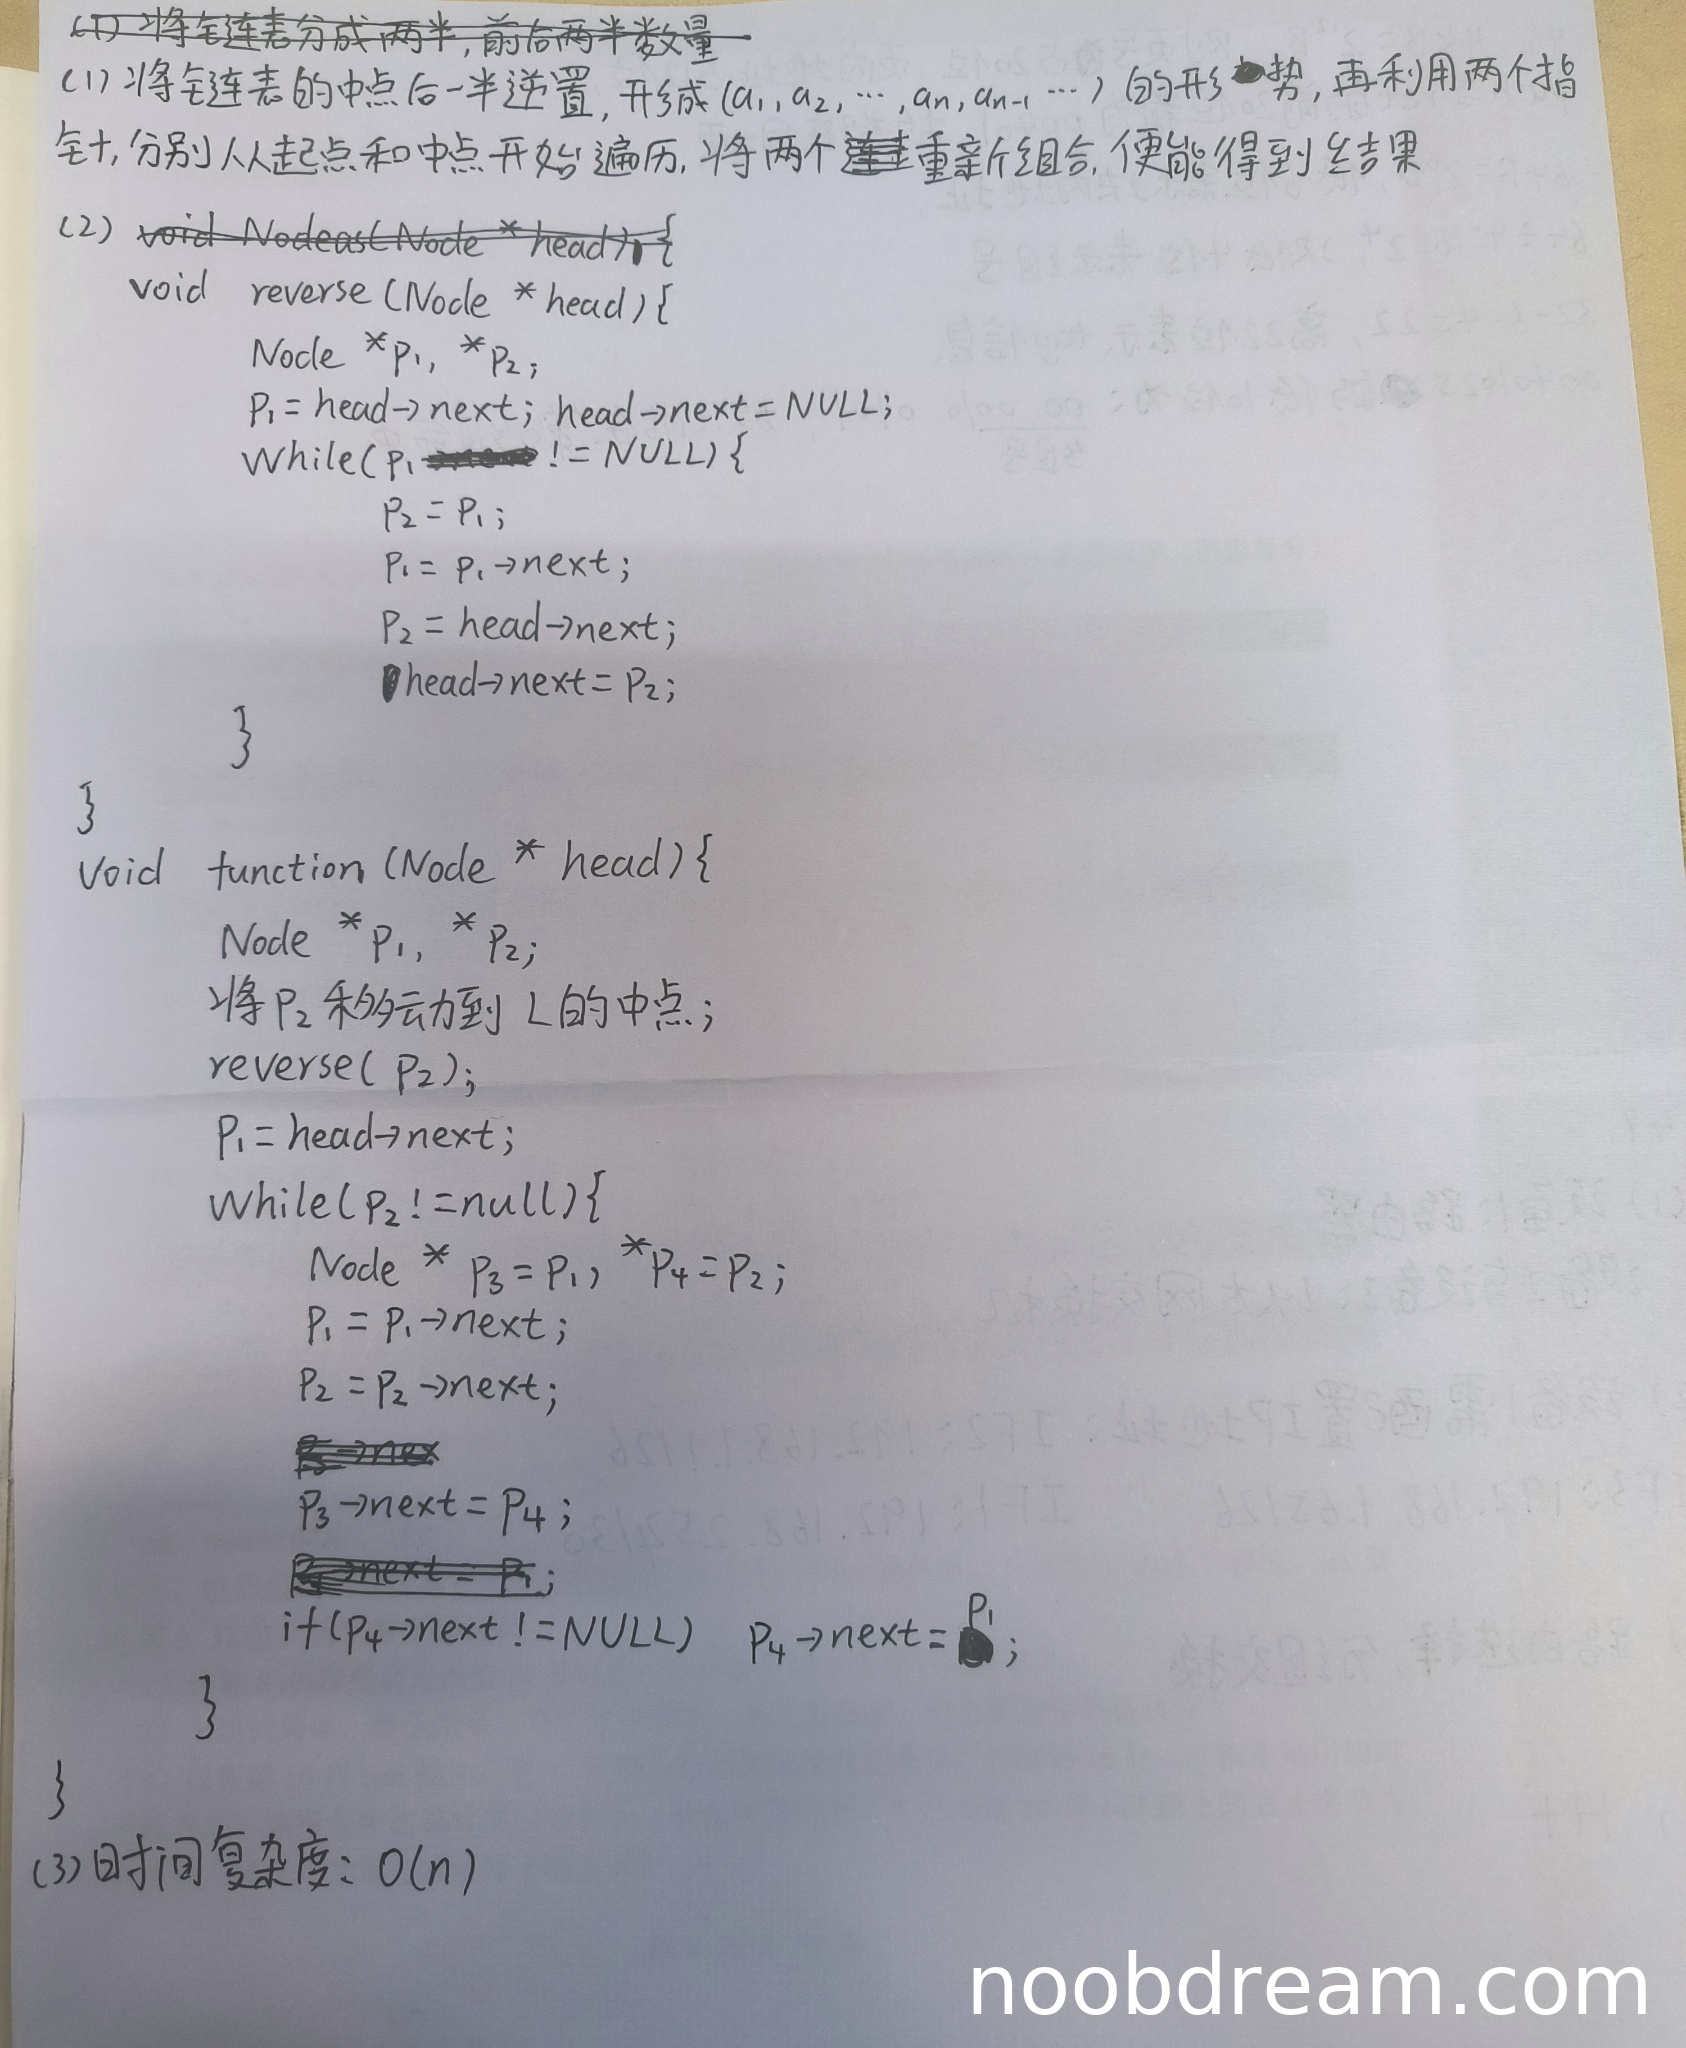 (1) 将链表分成两半,前后两半数量
(1) 将链表的中点后一半逆置,形成(a₁, a₂, …, aₙ, aₙ₋₁ …) 的形势,再利用两个指
针,分别从起点和中点开始遍历,将两个重新组合,便能得到结果
(2) void Nodeas(Node * head) {
void reverse (Node * head) {
Node *p₁, *p₂;
p₁ = head→next; head→next = NULL;
While(p₁ != NULL) {
p₂ = p₁;
p₁ = p₁→next;
p₂ = head→next;
head→next = p₂;
}
}
void function (Node * head) {
Node *p₁, *p₂;
将p₂移动到L的中点;
reverse( p₂);
p₁ = head→next;
While(p₂ != null) {
Node * p₃ = p₁, *p₄ = p₂;
p₁ = p₁→next;
p₂ = p₂→next;
p₃→next = p₄;
if(p₄→next != NULL) p₄→next = p₁;
}
}
(3) 时间复杂度: O(n)
noobdream.com